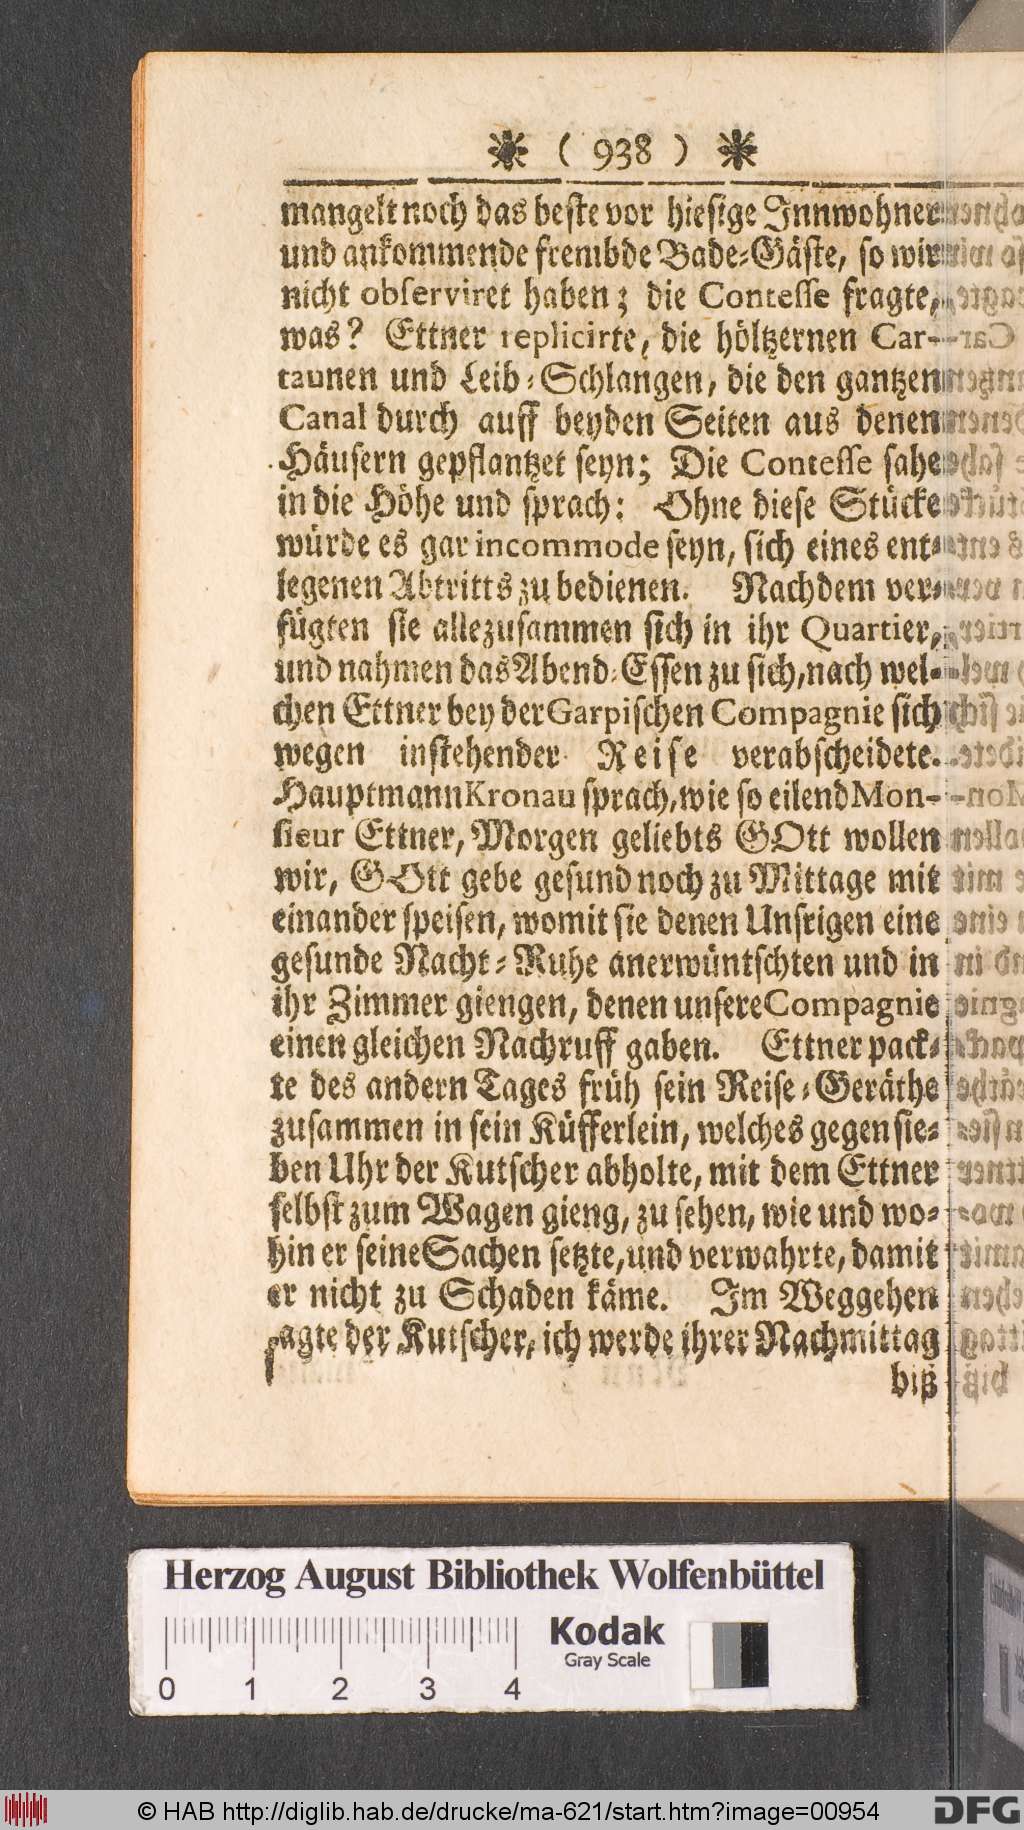 ( 938 )
mangelt noch das beste vor hiesige Innwohner
und ankommende frembde Bade-Gäste, so wir
nicht observiret haben; die Contesse fragte,
was? Ettner replicirte, die höltzernen Car-
taunen und Leib-Schlangen, die den gantzen
Canal durch auff beyden Seiten aus denen
Häusern gepflantzet seyn; Die Contesse sahe
in die Höhe und sprach: Ohne diese Stücke
würde es gar incommode seyn, sich eines ent-
legenen Abtritts zu bedienen. Nachdem ver-
fügten sie allezusammen sich in ihr Quartier,
und nahmen das Abend-Essen zu sich, nach wel-
chen Ettner bey der Garpischen Compagnie sich
wegen instehender Reise verabscheidete.
Hauptmann Kronau sprach, wie so eilend Mon-
sieur Ettner, Morgen geliebts GOtt wollen
wir, GOtt gebe gesund noch zu Mittage mit
einander speisen, womit sie denen Unsrigen eine
gesunde Nacht-Ruhe anerwüntschten und in
ihr Zimmer giengen, denen unsere Compagnie
einen gleichen Nachruff gaben. Ettner pack-
te des andern Tages früh sein Reise-Geräthe
zusammen in sein Küfferlein, welches gegen sie-
ben Uhr der Kutscher abholte, mit dem Ettner
selbst zum Wagen gieng, zu sehen, wie und wo-
hin er seine Sachen setzte, und verwahrte, damit
er nicht zu Schaden käme. Im Weggehen
sagte der Kutscher, ich werde ihrer Nachmittag
biß
Herzog August Bibliothek Wolfenbüttel
Kodak
Gray Scale
0 1 2 3 4
© HAB http://diglib.hab.de/drucke/ma-621/start.htm?image=00954
DFG